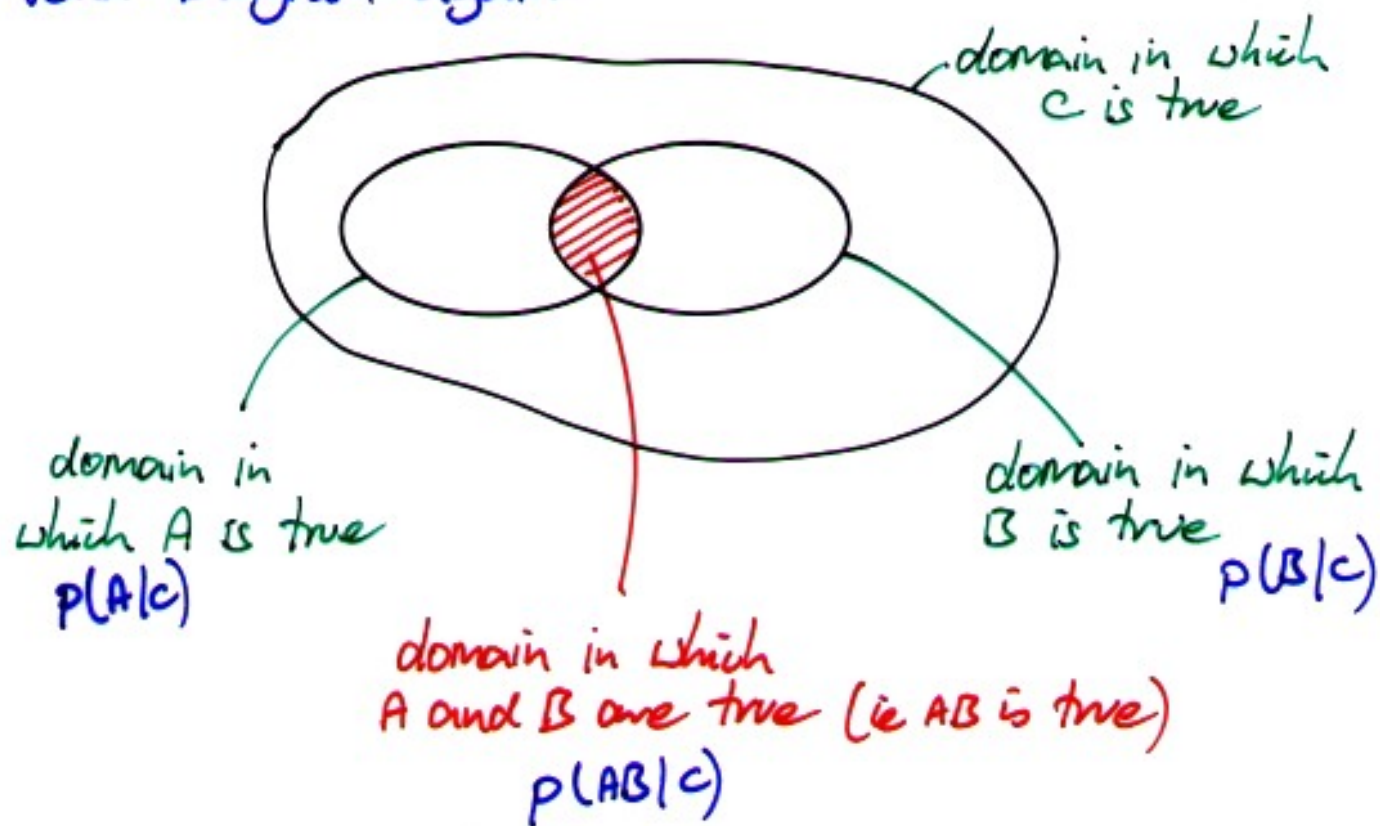 domain in which
C is true
domain in
which A is true
p(A|C)
domain in which
B is true
p(B|C)
domain in which
A and B are true (ie AB is true)
p(AB|C)